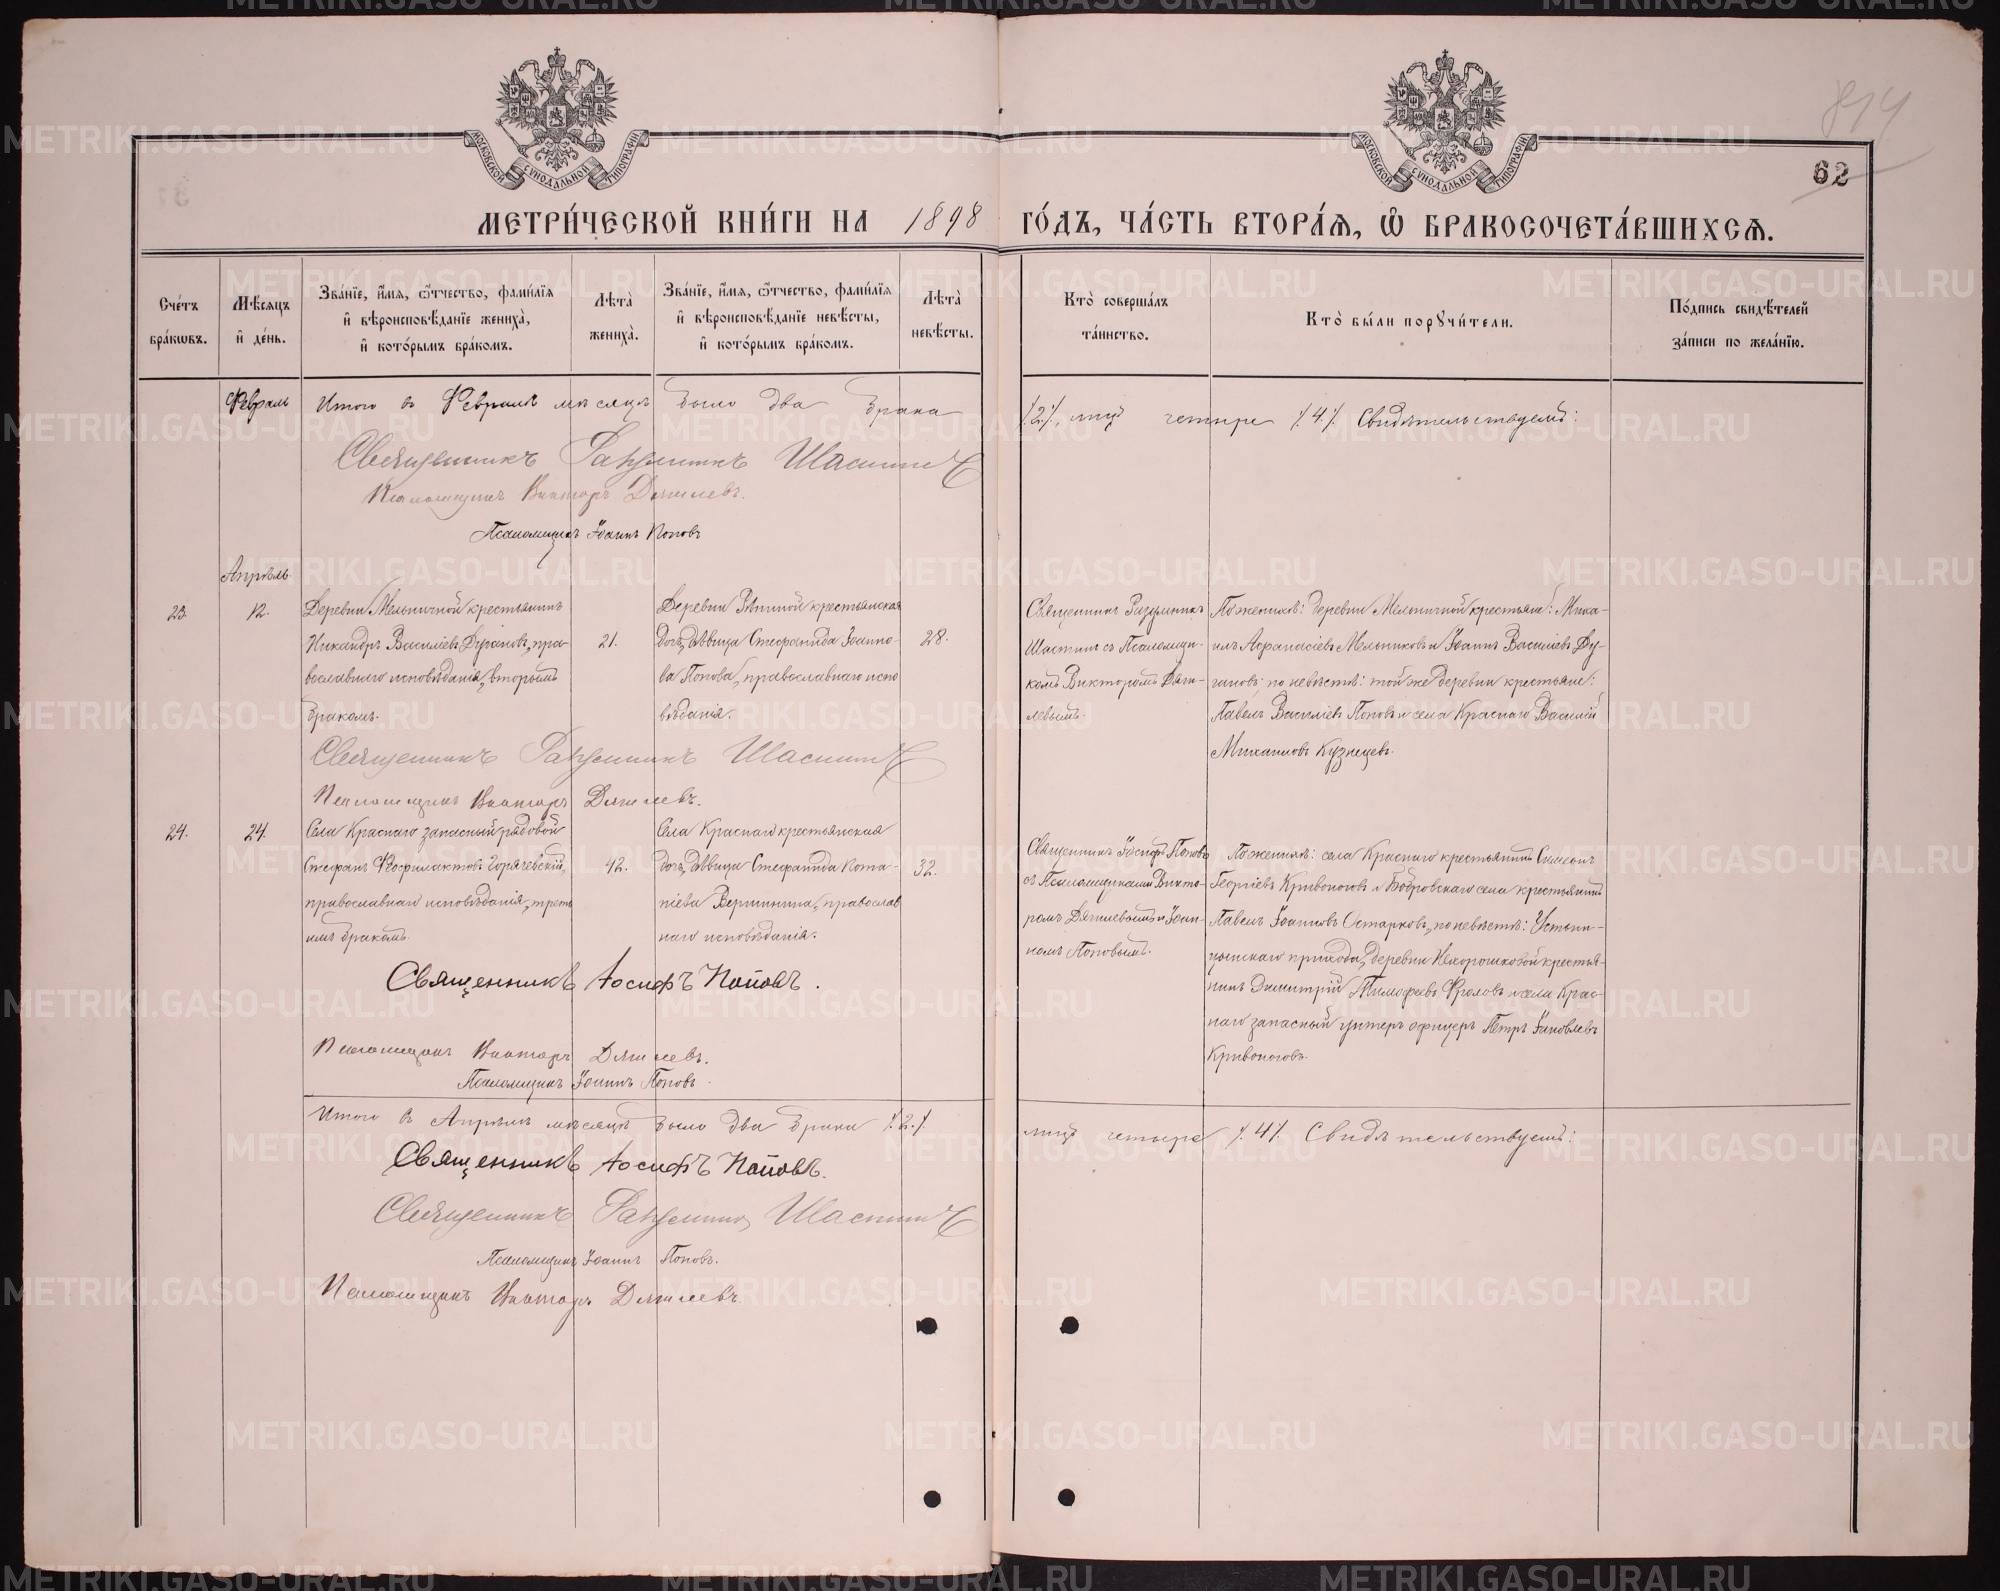 МОСКОВСКОЙ СУНОДАЛЬНОЙ ТИПОГРАФИИ
МОСКОВСКОЙ СУНОДАЛЬНОЙ ТИПОГРАФИИ
62
МЕТРИ́ЧЕСКОЙ КНИ́ГИ НА 1898 ГО́ДЪ, ЧА́СТЬ ВТОРА́Я, Ѿ БРАКОСОЧЕТА́ВШИХСЯ.
Сче́тъ бра́кѡвъ.
Мѣ́сяцъ и҆ де́нь.
Зва́нїе, и҆́мя, ѻ҆́тчество, фами́лїя и҆ вѣроисповѣ́данїе жениха̀, и҆ кото́рымъ бра́комъ.
Лѣта̀ жениха̀.
Зва́нїе, и҆́мя, ѻ҆́тчество, фами́лїя и҆ вѣроисповѣ́данїе невѣ́сты, и҆ кото́рымъ бра́комъ.
Лѣта̀ невѣ́сты.
Кто̀ соверша́лъ та́инство.
Кто̀ бы́ли порꙋчи́тели.
По́дпись свидѣ́телей за́писи по жела́нїю.
Февраль
Итого въ Февралѣ мѣсяцѣ было два брака /.2./, лицъ четыре /.4./. Свидѣтельствуемъ:
Священникъ Шастинъ
Псаломщикъ Викторъ Дягилевъ.
Псаломщикъ Іоаннъ Поповъ
Апрѣль.
23.
12.
Деревни Мельничной крестьянинъ
Никандръ Василіевъ Дугановъ, пра-
вославнаго исповѣданія, вторымъ
бракомъ.
21.
Деревни Рѣпиной крестьянская
дочь, дѣвица Стефанида Іоанно-
ва Попова, православнаго испо
вѣданія.
28.
Священникъ
Шастинъ съ Псаломщи-
комъ Викторомъ Дяги-
левымъ.
По женихѣ: деревни Мельничной крестьяне: Миха-
илъ Аѳанасіевъ Мельниковъ и Іоаннъ Василіевъ Ду-
гановъ; по невѣстѣ: той же деревни крестьяне:
Павелъ Василіевъ Поповъ и села Краснаго Василій
Михаиловъ Кузнецевъ.
Священникъ Шастинъ
Псаломщикъ Викторъ Дягилевъ.
24.
24.
Села Краснаго запасный рядовой
Стефанъ Ѳеофилактовъ Горячевскій,
православнаго исповѣданія, треть
имъ бракомъ.
42.
Села Краснаго крестьянская
дочь, дѣвица Стефанида Пота-
піева Вершинина, православ
наго исповѣданія.
32.
Священникъ Іосифъ Поповъ
съ Псаломщиками Викто-
ромъ Дягилевымъ и Іоан-
номъ Поповымъ.
По женихѣ: села Краснаго крестьянинъ Симеонъ
Георгіевъ Кривоноговъ и Бобровскаго села крестьянинъ
Павелъ Іоанновъ Остарковъ, по невѣстѣ: Устьни-
цынскаго прихода, деревни Нехорошковой крестья-
нинъ Димитрій Тимофеевъ Фроловъ и села Крас-
наго запасный унтеръ офицеръ Петръ Іаковлевъ
Кривоноговъ.
Священникъ Іосифъ Поповъ.
Псаломщикъ Викторъ Дягилевъ.
Псаломщикъ Іоаннъ Поповъ.
Итого въ Апрѣлѣ мѣсяцѣ было два брака /.2./. лицъ четыре /.4/. Свидѣтельствуемъ:
Священникъ Іосифъ Поповъ.
Священникъ Шастинъ
Псаломщикъ Іоаннъ Поповъ.
Псаломщикъ Викторъ Дягилевъ
METRIKI.GASO-URAL.RU